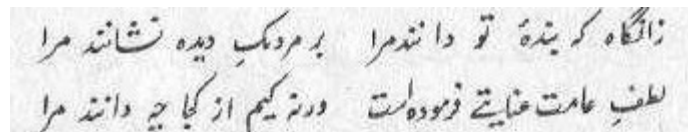 زانگاه که بندهٔ تو دانند مرا بر مردمک دیده نشانند مرا
لطف عامت عنایتی فرموده است ورنه کیم از کجا چه دانند مرا